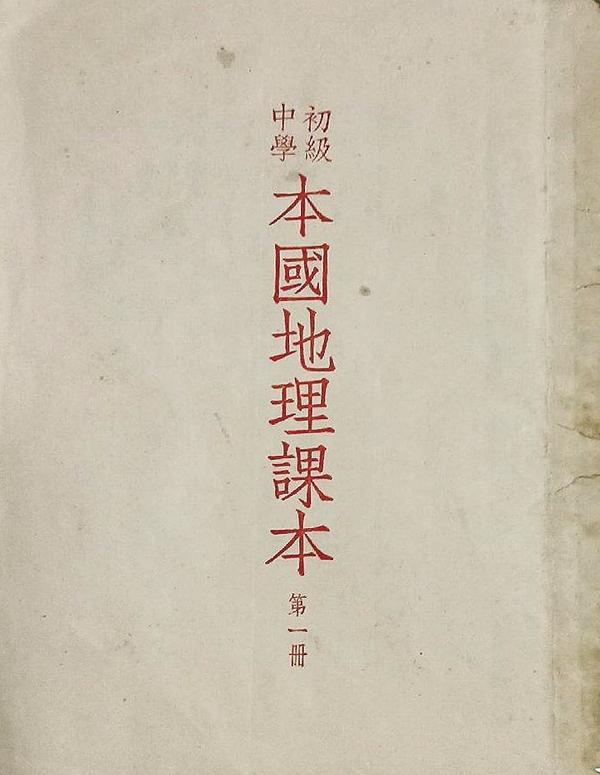 初級
中學
本國地理課本
第一冊